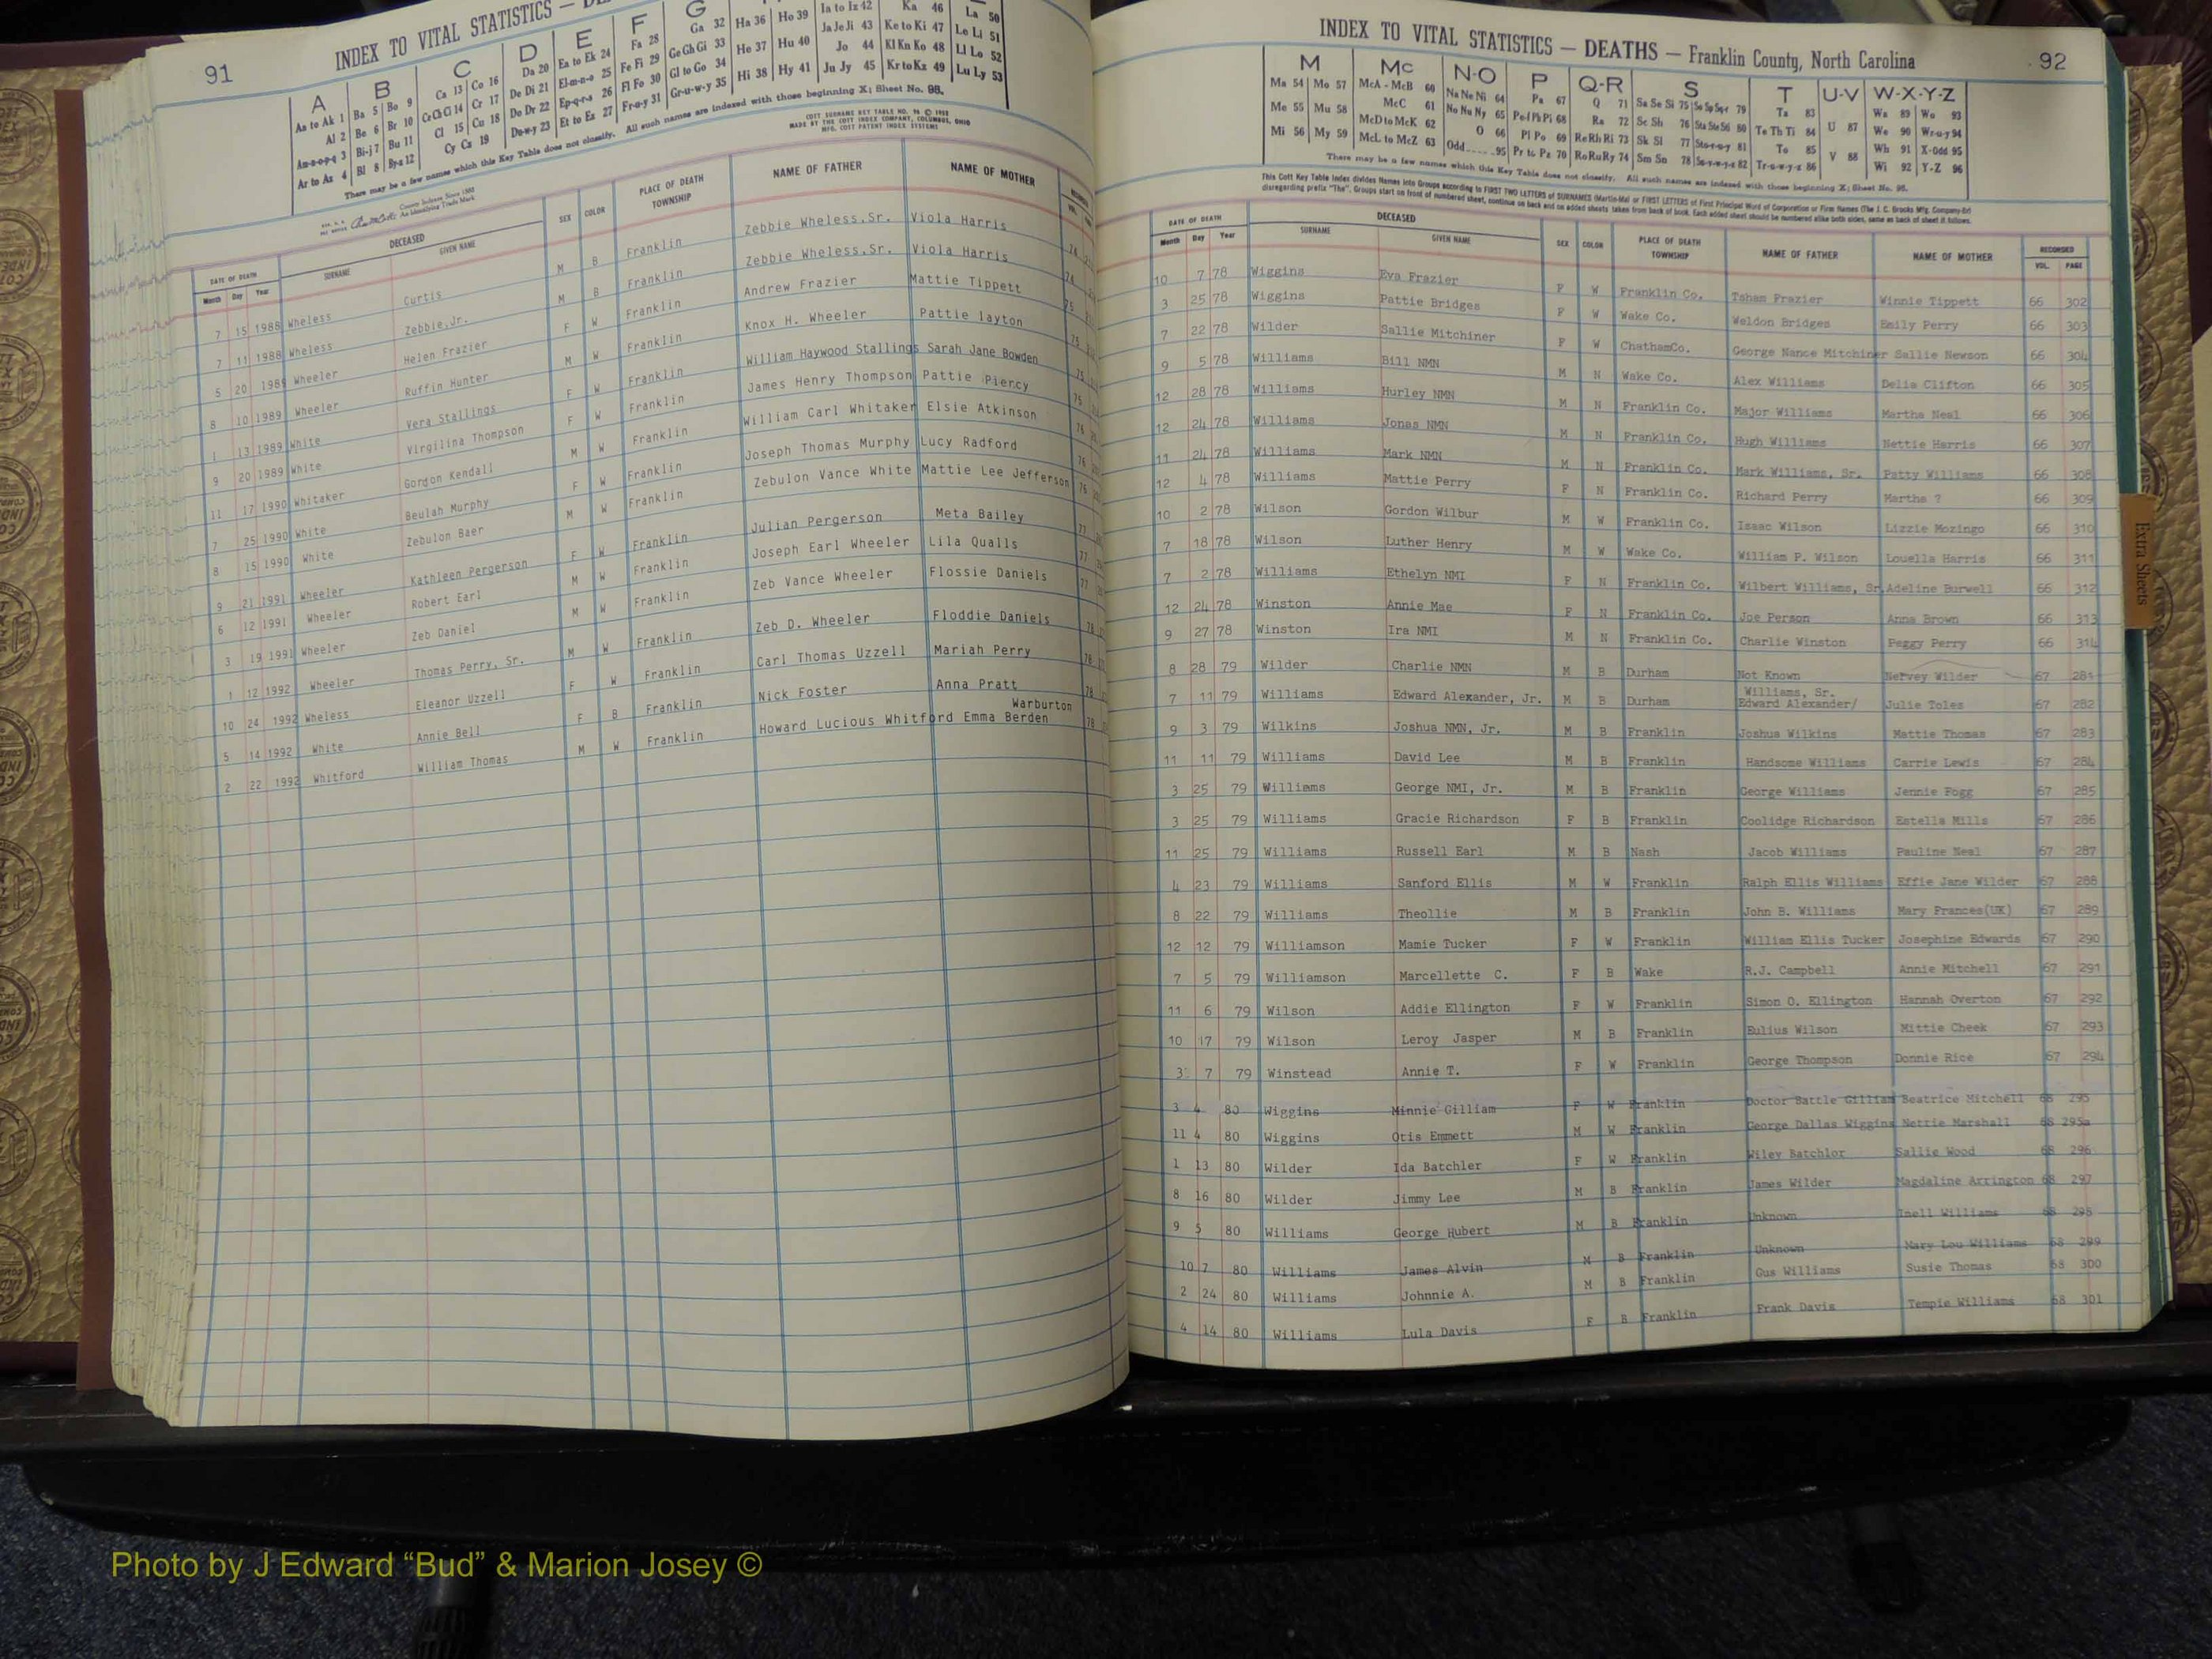 91
INDEX TO VITAL STATISTICS — DE
A B C D E F G
Aa to Ak 1 Ba 5 Bo 9 Ca 13 Co 16 Da 20 Ea to Ek 24 Fa 28 Ga 32 Ha 36 Ho 39 Ia to Iz 42 Ka 46 La 50
Al 2 Be 6 Br 10 Ce Ch Ci 14 Cr 17 De Di 21 El-m-n-o 25 Fe Fi 29 Ge Gh Gi 33 He 37 Hu 40 Ja Je Ji 43 Ke to Ki 47 Le Li 51
Am-n-o-p-q 3 Bi-j 7 Bu 11 Cl 15 Cu 18 Do Dr 22 Ep-q-r-s 26 Fl Fo 30 Gl to Go 34 Hi 38 Hy 41 Jo 44 Kl Kn Ko 48 Ll Lo 52
Ar to Az 4 Bl 8 By-z 12 Cy Cz 19 Du-w-y 23 Et to Ez 27 Fr-u-y 31 Gr-u-w-y 35 Ju Jy 45 Kr to Kz 49 Lu Ly 53
There may be a few names which this Key Table does not classify. All such names are indexed with those beginning X; Sheet No. 98.
COTT SURNAME KEY TABLE NO.
MADE BY THE COTT INDEX COMPANY, COLUMBUS, OHIO
MFG. COTT PATENT INDEX SYSTEMS
County Indexes Since 1888
An Identifying Trade Mark
DATE OF DEATH DECEASED SEX COLOR PLACE OF DEATH TOWNSHIP NAME OF FATHER NAME OF MOTHER
Month Day Year SURNAME GIVEN NAME
7 15 1988 Wheless Curtis M B Franklin Zebbie Wheless, Sr. Viola Harris 74
7 11 1988 Wheless Zebbie, Jr. M B Franklin Zebbie Wheless, Sr. Viola Harris 74
5 20 1989 Wheeler Helen Frazier F W Franklin Andrew Frazier Mattie Tippett 75
8 10 1989 Wheeler Ruffin Hunter M W Franklin Knox H. Wheeler Pattie Layton 75
1 13 1989 White Vera Stallings F W Franklin William Haywood Stallings Sarah Jane Bowden 75
9 20 1989 White Virgilina Thompson F W Franklin James Henry Thompson Pattie Piercy 75
11 17 1990 Whitaker Gordon Kendall M W Franklin William Carl Whitaker Elsie Atkinson 76
7 25 1990 White Beulah Murphy F W Franklin Joseph Thomas Murphy Lucy Radford 76
8 15 1990 White Zebulon Baer M W Franklin Zebulon Vance White Mattie Lee Jefferson 76
9 21 1991 Wheeler Kathleen Pergerson F W Franklin Julian Pergerson Meta Bailey 77
6 12 1991 Wheeler Robert Earl M W Franklin Joseph Earl Wheeler Lila Qualls 77
3 19 1991 Wheeler Zeb Daniel M W Franklin Zeb Vance Wheeler Flossie Daniels 77
1 12 1992 Wheeler Thomas Perry, Sr. M W Franklin Zeb D. Wheeler Floddie Daniels 78
10 24 1992 Wheless Eleanor Uzzell F W Franklin Carl Thomas Uzzell Mariah Perry 78
5 14 1992 White Annie Bell F B Franklin Nick Foster Anna Pratt 78
Warburton
2 22 1992 Whitford William Thomas M W Franklin Howard Lucious Whitford Emma Berden 78
92
INDEX TO VITAL STATISTICS — DEATHS — Franklin County, North Carolina
M Mc N-O P Q-R S T U-V W-X-Y-Z
Ma 54 Mo 57 McA - McB 60 Na Ne Ni 64 Pa 67 Q 71 Sa Se Si 75 Se Sp Sq-r 79 Ta 83 Wa 89 Wo 93
Me 55 Mu 58 McC 61 No Nu Ny 65 Pe-f Ph Pi 68 Ra 72 Sc Sh 76 Sta Ste St 80 Te Th Ti 84 U 87 We 90 Wr-u-y 94
Mi 56 My 59 McD to McK 62 O 66 Pl Po 69 Re Rh Ri 73 Sk Sl 77 Sto-r-u-y 81 To 85 V 88 Wh 91 X-Odd 95
McL to McZ 63 Odd 95 Pr to Pz 70 Ro Ru Ry 74 Sm Sn 78 Su-v-w-y-z 82 Tr-u-w-y-z 86 Wi 92 Y-Z 96
There may be a few names which this Key Table does not classify. All such names are indexed with those beginning X; Sheet No. 98.
This Cott Key Table Index divides Names into Groups according to FIRST TWO LETTERS of SURNAMES (Martin-Ma) or FIRST LETTERS of First Principal Word of Corporation or Firm Names (The J. C. Brooks Mfg. Company-Br)
disregarding prefix "The". Groups start on front of numbered sheet, continue on back and on added sheets taken from back of book. Each added sheet should be numbered alike both sides, same as back of sheet it follows.
DATE OF DEATH DECEASED SEX COLOR PLACE OF DEATH TOWNSHIP NAME OF FATHER NAME OF MOTHER RECORDED
Month Day Year SURNAME GIVEN NAME VOL. PAGE
10 7 78 Wiggins Eva Frazier F W Franklin Co. Tsham Frazier Winnie Tippett 66 302
3 25 78 Wiggins Pattie Bridges F W Wake Co. Weldon Bridges Emily Perry 66 303
7 22 78 Wilder Sallie Mitchiner F W ChathamCo. George Nance Mitchiner Sallie Newson 66 304
9 5 78 Williams Bill NMN M N Wake Co. Alex Williams Delia Clifton 66 305
12 28 78 Williams Hurley NMN M N Franklin Co. Major Williams Martha Neal 66 306
12 24 78 Williams Jonas NMN M N Franklin Co. Hugh Williams Nettie Harris 66 307
11 24 78 Williams Mark NMN M N Franklin Co. Mark Williams, Sr. Patty Williams 66 308
12 4 78 Williams Mattie Perry F N Franklin Co. Richard Perry Martha ? 66 309
10 2 78 Wilson Gordon Wilbur M W Franklin Co. Isaac Wilson Lizzie Mozingo 66 310
7 18 78 Wilson Luther Henry M W Wake Co. William P. Wilson Louella Harris 66 311
7 2 78 Williams Ethelyn NMI F N Franklin Co. Wilbert Williams, Sr. Adeline Burwell 66 312
12 24 78 Winston Annie Mae F N Franklin Co. Joe Person Anna Brown 66 313
9 27 78 Winston Ira NMI M N Franklin Co. Charlie Winston Peggy Perry 66 314
8 28 79 Wilder Charlie NMN M B Durham Not Known Nervey Wilder 67 281
7 11 79 Williams Edward Alexander, Jr. M B Durham Williams, Sr. Edward Alexander/ Julie Toles 67 282
9 3 79 Wilkins Joshua NMN, Jr. M B Franklin Joshua Wilkins Mattie Thomas 67 283
11 11 79 Williams David Lee M B Franklin Handsome Williams Carrie Lewis 67 284
3 25 79 Williams George NMI, Jr. M B Franklin George Williams Jennie Fogg 67 285
3 25 79 Williams Gracie Richardson F B Franklin Coolidge Richardson Estella Mills 67 286
11 25 79 Williams Russell Earl M B Nash Jacob Williams Pauline Neal 67 287
4 23 79 Williams Sanford Ellis M W Franklin Ralph Ellis Williams Effie Jane Wilder 67 288
8 22 79 Williams Theollie M B Franklin John B. Williams Mary Frances(UK) 67 289
12 12 79 Williamson Mamie Tucker F W Franklin William Ellis Tucker Josephine Edwards 67 290
7 5 79 Williamson Marcellette C. F B Wake R.J. Campbell Annie Mitchell 67 291
11 6 79 Wilson Addie Ellington F W Franklin Simon O. Ellington Hannah Overton 67 292
10 17 79 Wilson Leroy Jasper M B Franklin Eulius Wilson Mittie Cheek 67 293
3 7 79 Winstead Annie T. F W Franklin George Thompson Donnie Rice 67 294
3 4 80 Wiggins Minnie Gilliam F W Franklin Doctor Battle Gilliam Beatrice Mitchell 68 295
11 4 80 Wiggins Otis Emmett M W Franklin George Dallas Wiggins Nettie Marshall 68 295a
1 13 80 Wilder Ida Batchler F W Franklin Wiley Batchlor Sallie Wood 68 296
8 16 80 Wilder Jimmy Lee M B Franklin James Wilder Magdaline Arrington 68 297
9 5 80 Williams George Hubert M B Franklin Unknown Inell Williams 68 298
10 7 80 Williams James Alvin M B Franklin Unknown Mary Lou Williams 68 299
2 24 80 Williams Johnnie A. M B Franklin Gus Williams Susie Thomas 68 300
4 14 80 Williams Lula Davis F B Franklin Frank Davis Tempie Williams 68 301
Extra Sheets
Photo by J Edward “Bud” & Marion Josey ©